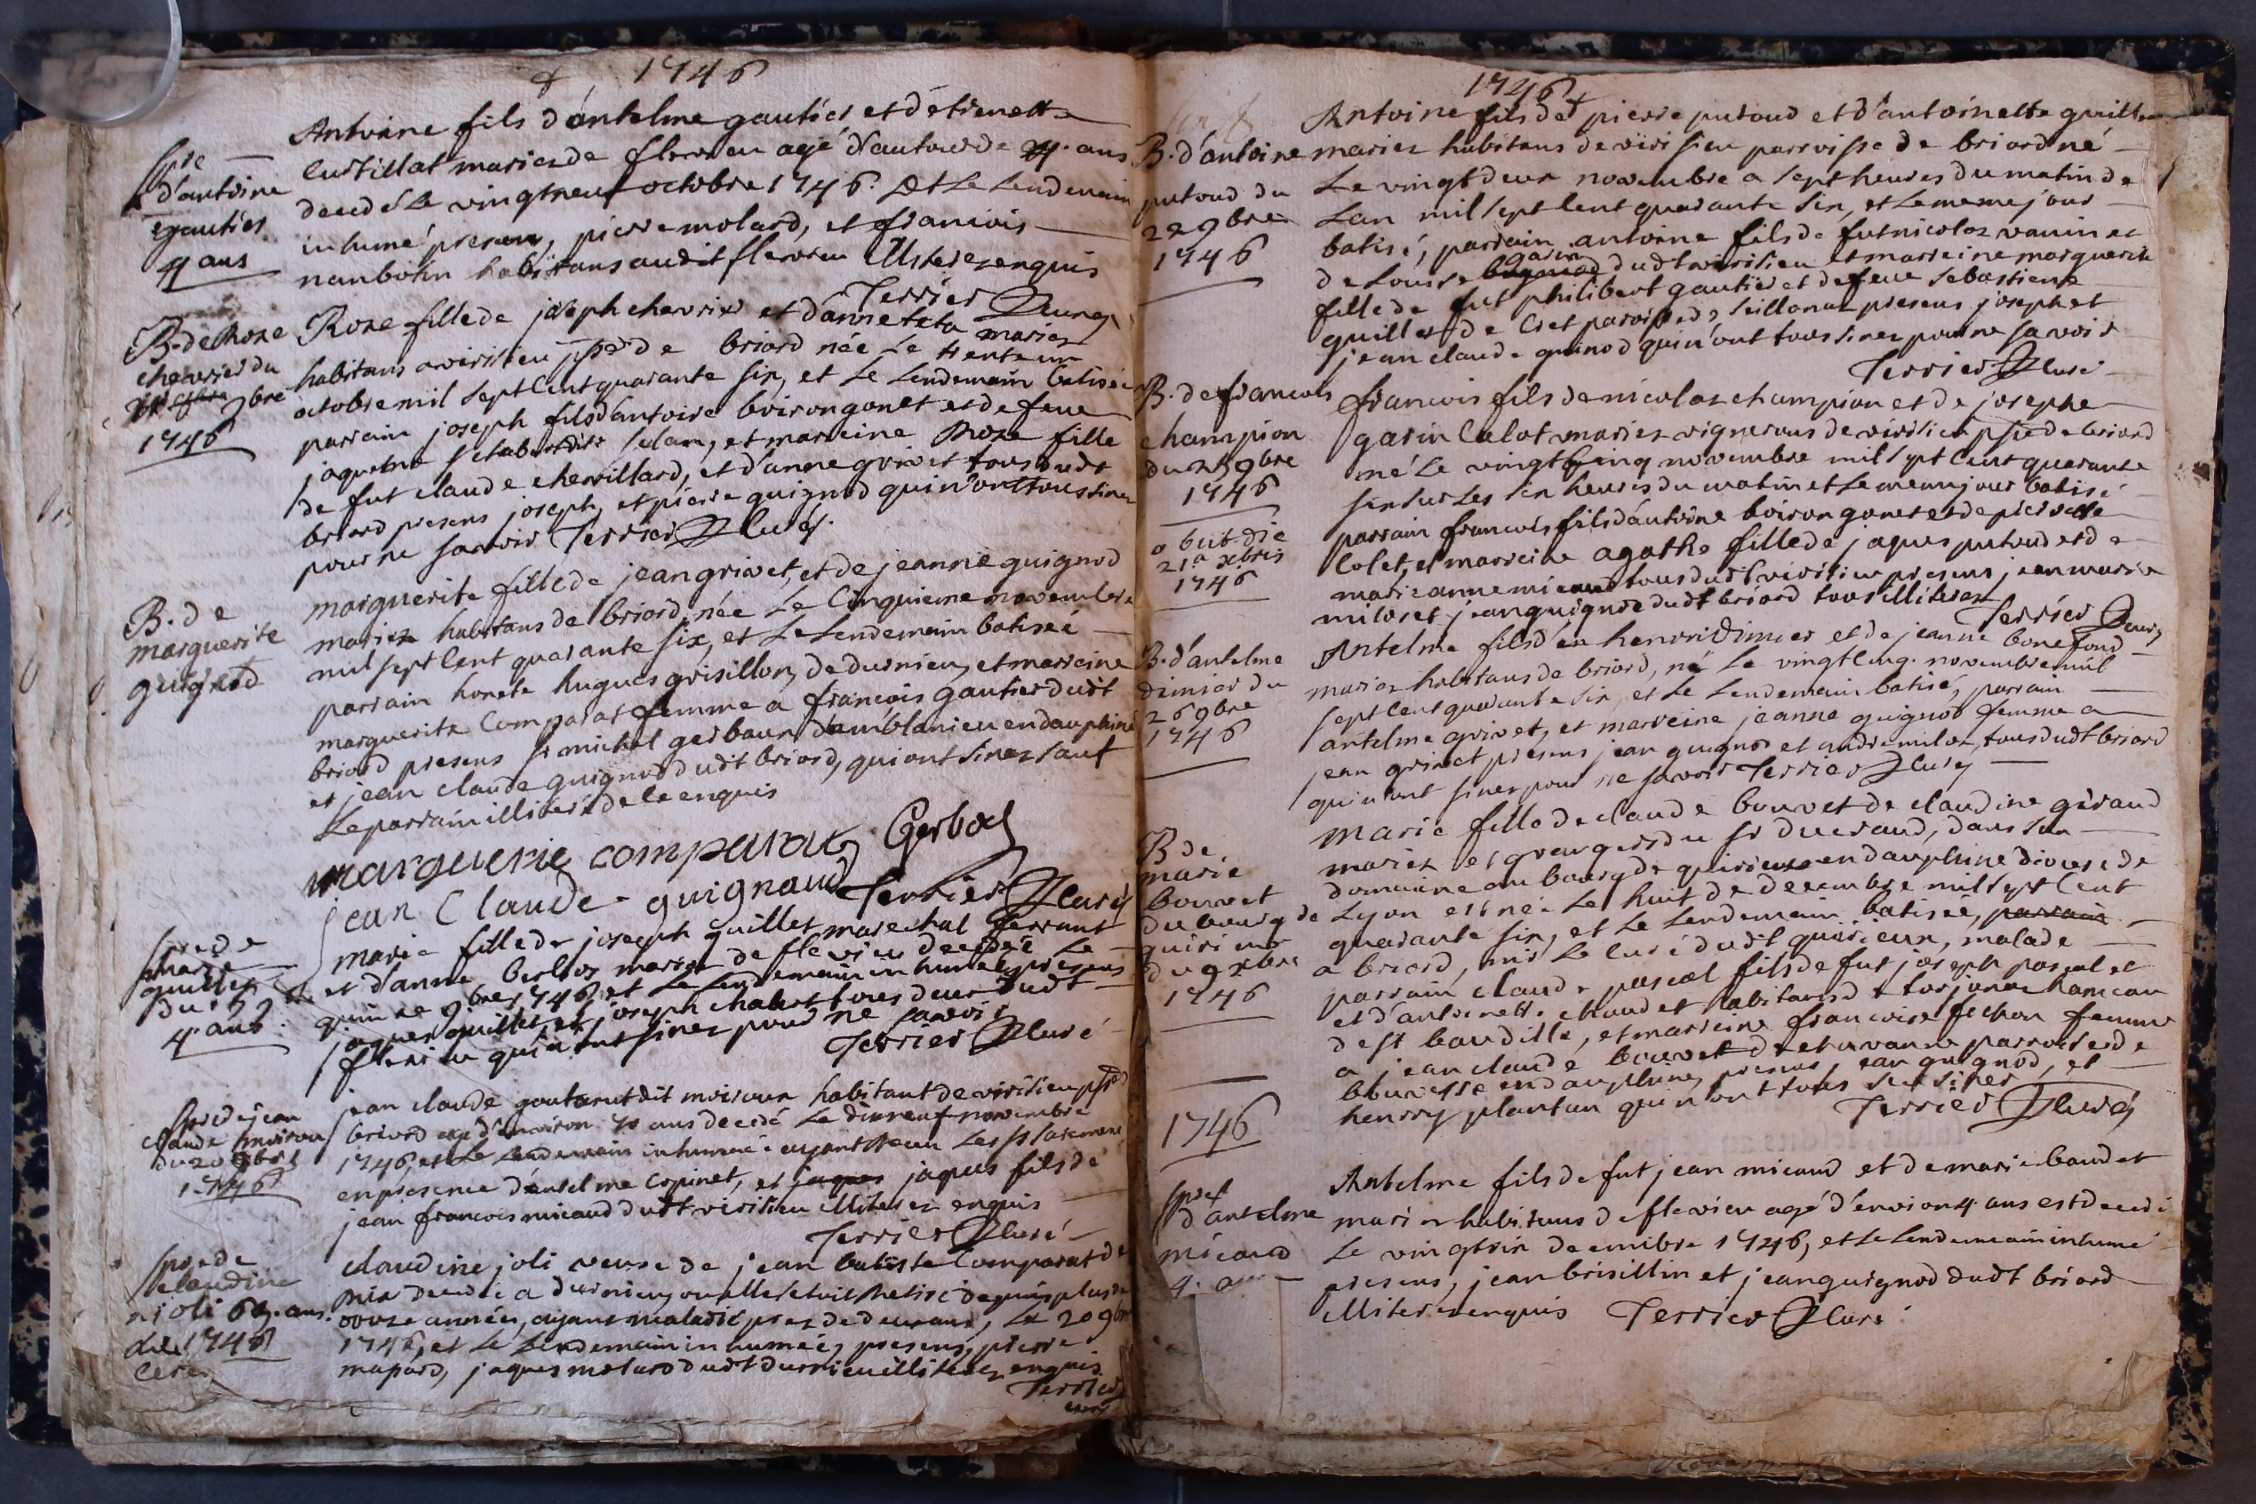 1746
Antoine fils d'antelme gautier et d'etienette
mariez de flevieu agé d'autour de 4. ans
decedé le vingtneuf octobre 1746. Et le lendemain
inhumé presens, pierre molard, et francois
habitans audit flevieu illiterez enquis
Terrier Curé
spre
d'antoine
gautier
4 ans
Roze fille de joseph chevrier et d'anne teta mariez
habitans a virisieu psse de briord née le trente un
octobre mil sept cent quarante six, et le lendemain batisée
parrain joseph fils d'antoine boirongonet et de feue
jaquema et marreine Roze fille
de fut claude chevillard, et d'anne grivet tous dudt
briord presens joseph, et pierre guignod qui n'ont tous sinez
pour ne savoir Terrier Curé.
B. de Roze
chevrier du
9bre
1746
marguerite fille de jean grivet, et de jeanne guignod
mariez habitans de briord, née le cinquieme novembre
mil sept cent quarante six, et le lendemain batisée
parrain honete hugues grisillon, de durnieu, et marreine
marguerite Comparat femme a francois gautier dudt
briord presens sr michel gerbaux d'amblanieu en dauphiné
et jean claude guignod dudt briord, qui ont sinez sauf
le parrain illiteré de ce enquis
marguerite comparat Gerbod
jean Claude guignaud Terrier Curé
B. de
marguerite
guignod
marie fille de joseph quillet marechal ferrant
et d'anne berlioz mariez de flevieu decedée le
quinze 9bre 1746, et le lendemain inhumée, presens
jaques quillet, et joseph chabert tous deux dudt
flevieu qui n'ont sinez pour ne savoir
Terrier Curé
spre de
marie
quillet
du 15 9bre
4 ans
jean claude goutarut dit moiroux habitant de virisieu psse de
briord agé d'environ 70 ans decedé le dixneuf novembre
1746, et le lendemain inhumé ayant receu les sts sacremens
en presence d'antelme copinet, et jaques fils de
jean francois micaud dudt virisieu illiterez enquis
Terrier Curé
spre de jean
claude moiroux
du 20 9bre
1746
claudine joli veuve de jean batiste Comparat de
decedée a durnieu, ou elle s'etoit retirée depuis plus de
onze années, ayant maladie prez de deux ans, le 20 9bre
1746, et le lendemain inhumée, presens, pierre
mapard, jaques molard dudt durnieu illiterez enquis
Terrier
curé
spre de
claudine
joli 69. ans
1746
1746
Antoine fils de pierre putoud et d'antoinette quillet
mariez habitans de virisieu parroisse de briord né
le vingt deux novembre a sept heures du matin de
lan mil sept cent quarante six, et le meme jour
batisé, parrain antoine fils de fut nicolas vanin et
de Louise garin dudt virisieu et marreine marguerite
fille de fut philibert gautier et de feue sebastiene
quillet de Cret paroisse de seillonaz presens joseph et
jean claude guinod qui n'ont tous sinez pour ne savoir
Terrier Curé
B. d'antoine
putoud du
22 9bre
1746
francois fils de nicolas champion et de josephe
garin Calot mariez vignerons de virisieu psse de briord
né le vingt cinq novembre mil sept cent quarante
six sur les six heures du matin et le meme jour batisé
parrain francois fils d'antoine boirongonet et de pierrette
Colet, et marreine agathe fille de jaques putoud et de
marie anne micaud tous dudt virisieu presens jean marie
miloz et jean guignod dudt briord tous illiterez
Terrier Curé
B. de francois
champion
du 25 9bre
1746
obiit die
21a xbris
1746
Antelme fils d'en henri dimier et de jeanne bonefond
mariez habitans de briord, né le vingt cinq novembre mil
sept cent quarante six, et le lendemain batisé, parrain
antelme grivet, et marreine jeanne guignod femme a
jean grivet presens jean guignod et andré miloz, tous dudt briord
qui n'ont sinez pour ne savoir Terrier Curé
B. d'antelme
dimier du
26 9bre
1746
Marie fille de claude bouvet de claudine géraud
mariez et grangers du sr duceraud, dans son
domaine au bourg de quirieux en dauphiné diocese de
Lyon est née le huit de decembre mil sept cent
quarante six, et le lendemain batisée, parrain
a briord, mr le curé dudt quirieux, malade
parrain claude pascal fils de fut joseph pascal et
et d'antoinette chaudet habitans de torjonas hameau
de st baudille, et marreine francoise fichon femme
a jean claude bouvet de paroisse de
bouvesse en dauphiné, presens, jean guignod, et
henry plantan qui n'ont tous sceu siner
Terrier Curé
B de
marie
bouvet
du bourg de
quirieux
du 9 xbre
1746
1746
Antelme fils de fut jean micaud et de marie baudet
mariez habitans de flevieu agé d'environ 4 ans est decedé
le vingt six decembre 1746, et le lendemain inhumé
presens, jean brisillin et jean guignod dudt briord
illiterez enquis Terrier Curé
spre
d'antelme
micaud
4. ans